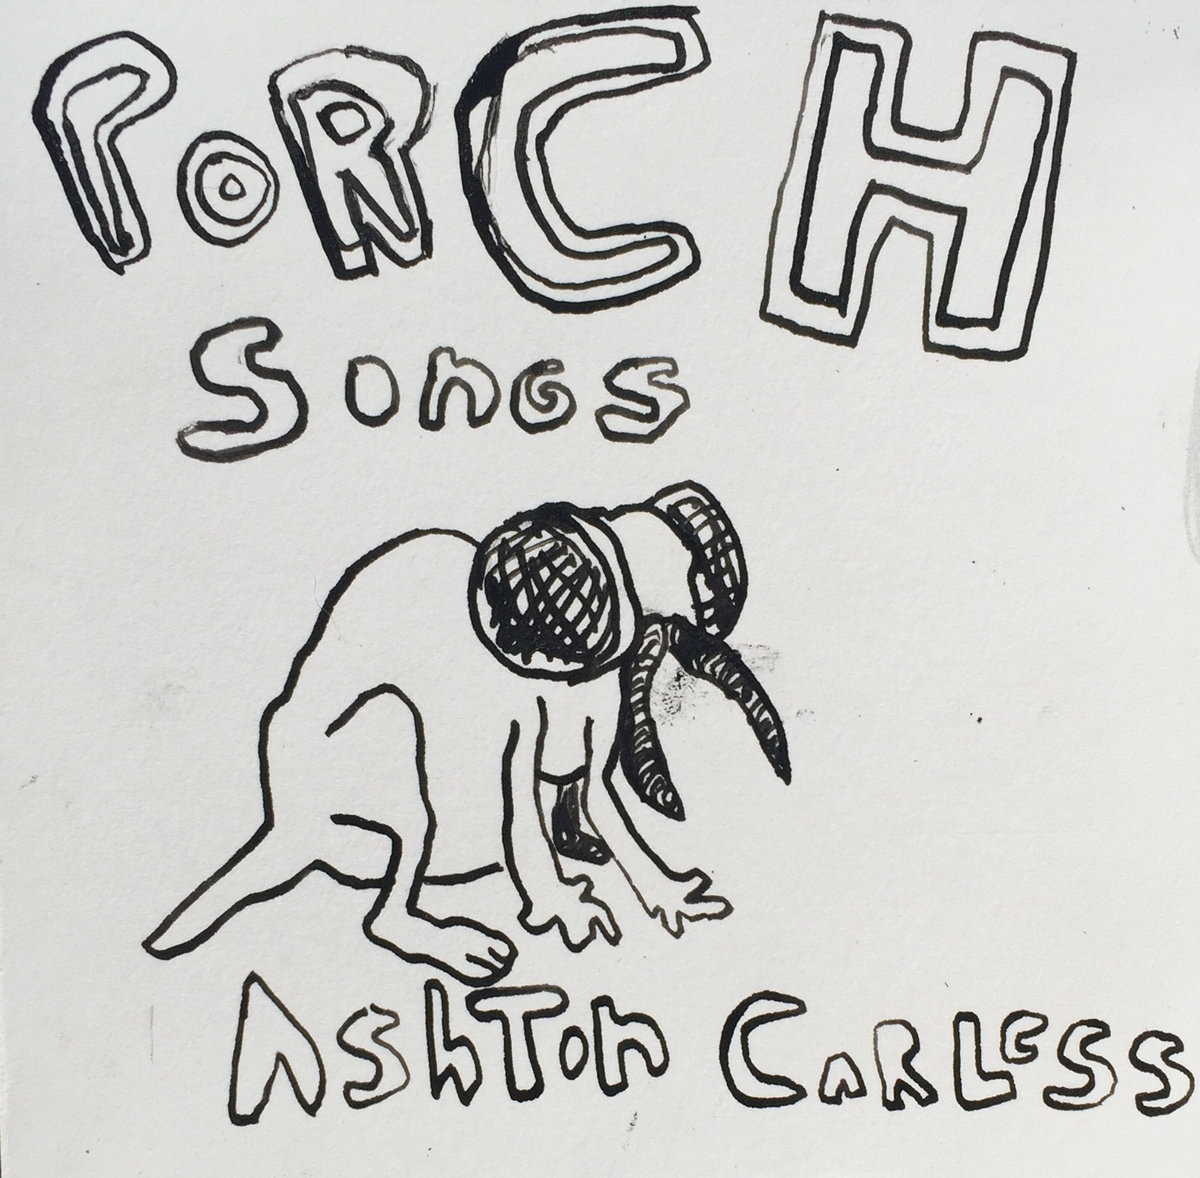 PoRCH
SonGs
AShTon CaRLeSS